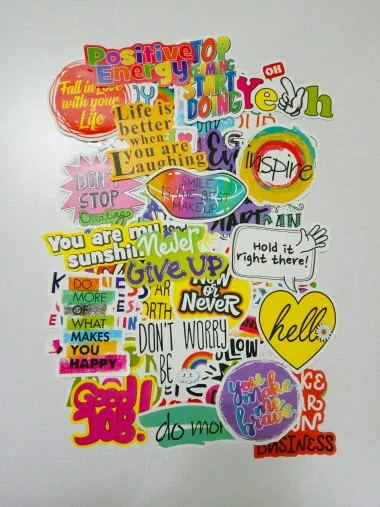 Positive
Energy
TOP
START
DOING
OH
Yeah
Fall in Love
with your
Life
Life is
better
when
you are
Laughing
inspire
DON'T
STOP
Creating
SMILE
IS THE BEST
MAKEUP
You are my
sunshin
Never
Give UP
Hold it
right there!
DO
MORE
OF
WHAT
MAKES
YOU
HAPPY
NOW
or
NeveR
hello
DON'T WORRY
BE
LOW
Good
JOB!
do mor
you
make
me
brave
BUSINESS